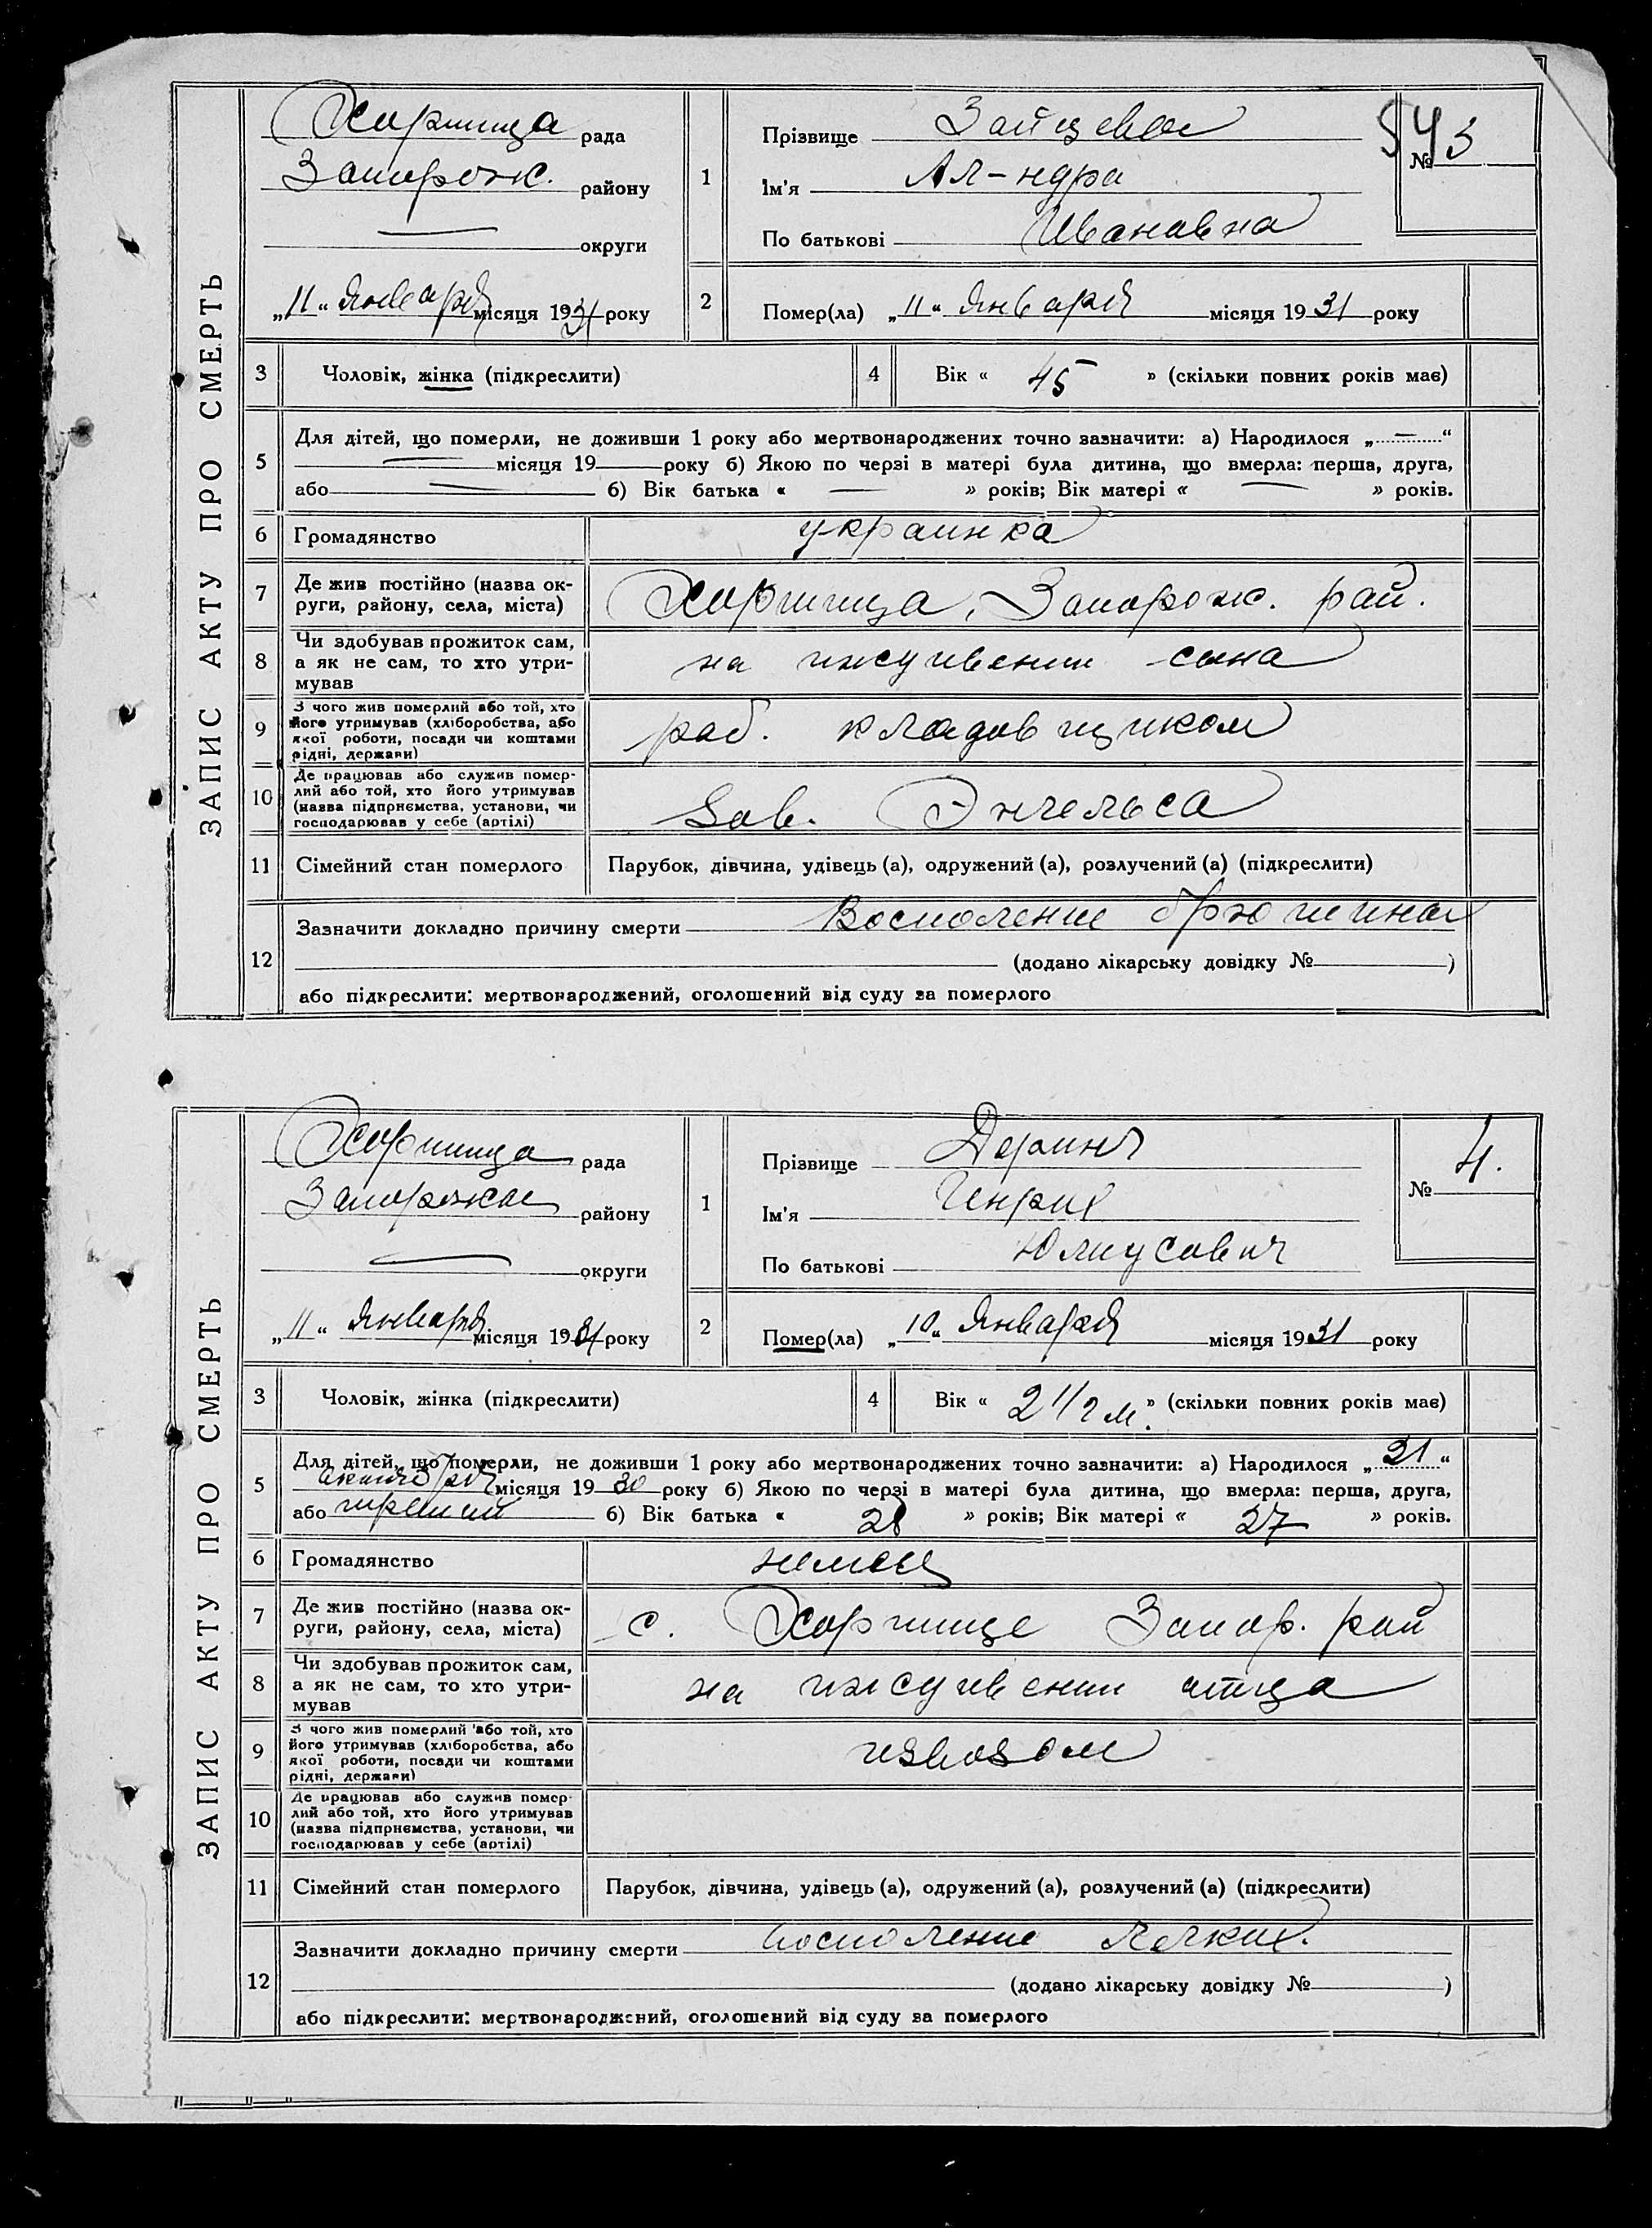 ЗАПИС АКТУ ПРО СМЕРТЬ
Хортица рада
Запорож. району
— округи
„11“ Января місяця 1931 року
1
Прізвище Зайцева
Ім'я Ал-ндра
По батькові Ивановна
№ 3
2 Помер(ла) „11“ Января місяця 1931 року
3 Чоловік, жінка (підкреслити)
4 Вік « 45 » (скільки повних років має)
5 Для дітей, що померли, не доживши 1 року або мертвонароджених точно зазначити: а) Народилося „—“
— місяця 19 року б) Якою по черзі в матері була дитина, що вмерла: перша, друга,
або — б) Вік батька « — » років; Вік матері « — » років.
6 Громадянство украинка
7 Де жив постійно (назва ок-
руги, району, села, міста) Хортица, Запорож. рай.
8 Чи здобував прожиток сам,
а як не сам, то хто утри-
мував на иждивении сына
9 З чого жив померлий або той, хто
його утримував (хліборобства, або
якої роботи, посади чи коштами
рідні, держави) раб. кладовщиком
10 Де працював або служив помер-
лий або той, хто його утримував
(назва підприємства, установи, чи
господарював у себе (артілі) Зав. Энгельса
11 Сімейний стан померлого Парубок, дівчина, удівець (а), одружений (а), розлучений (а) (підкреслити)
12 Зазначити докладно причину смерти Восполение брюшины
(додано лікарську довідку № )
або підкреслити: мертвонароджений, оголошений від суду за померлого
ЗАПИС АКТУ ПРО СМЕРТЬ
Хортица рада
Запорожск району
— округи
„11“ Января місяця 1931 року
1
Прізвище
Ім'я Генрих
По батькові Юлиусович
№ 4.
2 Помер(ла) „10“ Января місяця 1931 року
3 Чоловік, жінка (підкреслити)
4 Вік « 2 1/2 м. » (скільки повних років має)
5 Для дітей, що померли, не доживши 1 року або мертвонароджених точно зазначити: а) Народилося „31“
октября місяця 1930 року б) Якою по черзі в матері була дитина, що вмерла: перша, друга,
або третий б) Вік батька « 28 » років; Вік матері « 27 » років.
6 Громадянство немец
7 Де жив постійно (назва ок-
руги, району, села, міста) с. Хортице Запор. рай
8 Чи здобував прожиток сам,
а як не сам, то хто утри-
мував на иждивении отца
9 З чого жив померлий або той, хто
його утримував (хліборобства, або
якої роботи, посади чи коштами
рідні, держави) извозом
10 Де працював або служив помер-
лий або той, хто його утримував
(назва підприємства, установи, чи
господарював у себе (артілі)
11 Сімейний стан померлого Парубок, дівчина, удівець (а), одружений (а), розлучений (а) (підкреслити)
12 Зазначити докладно причину смерти восполение легких.
(додано лікарську довідку № )
або підкреслити: мертвонароджений, оголошений від суду за померлого